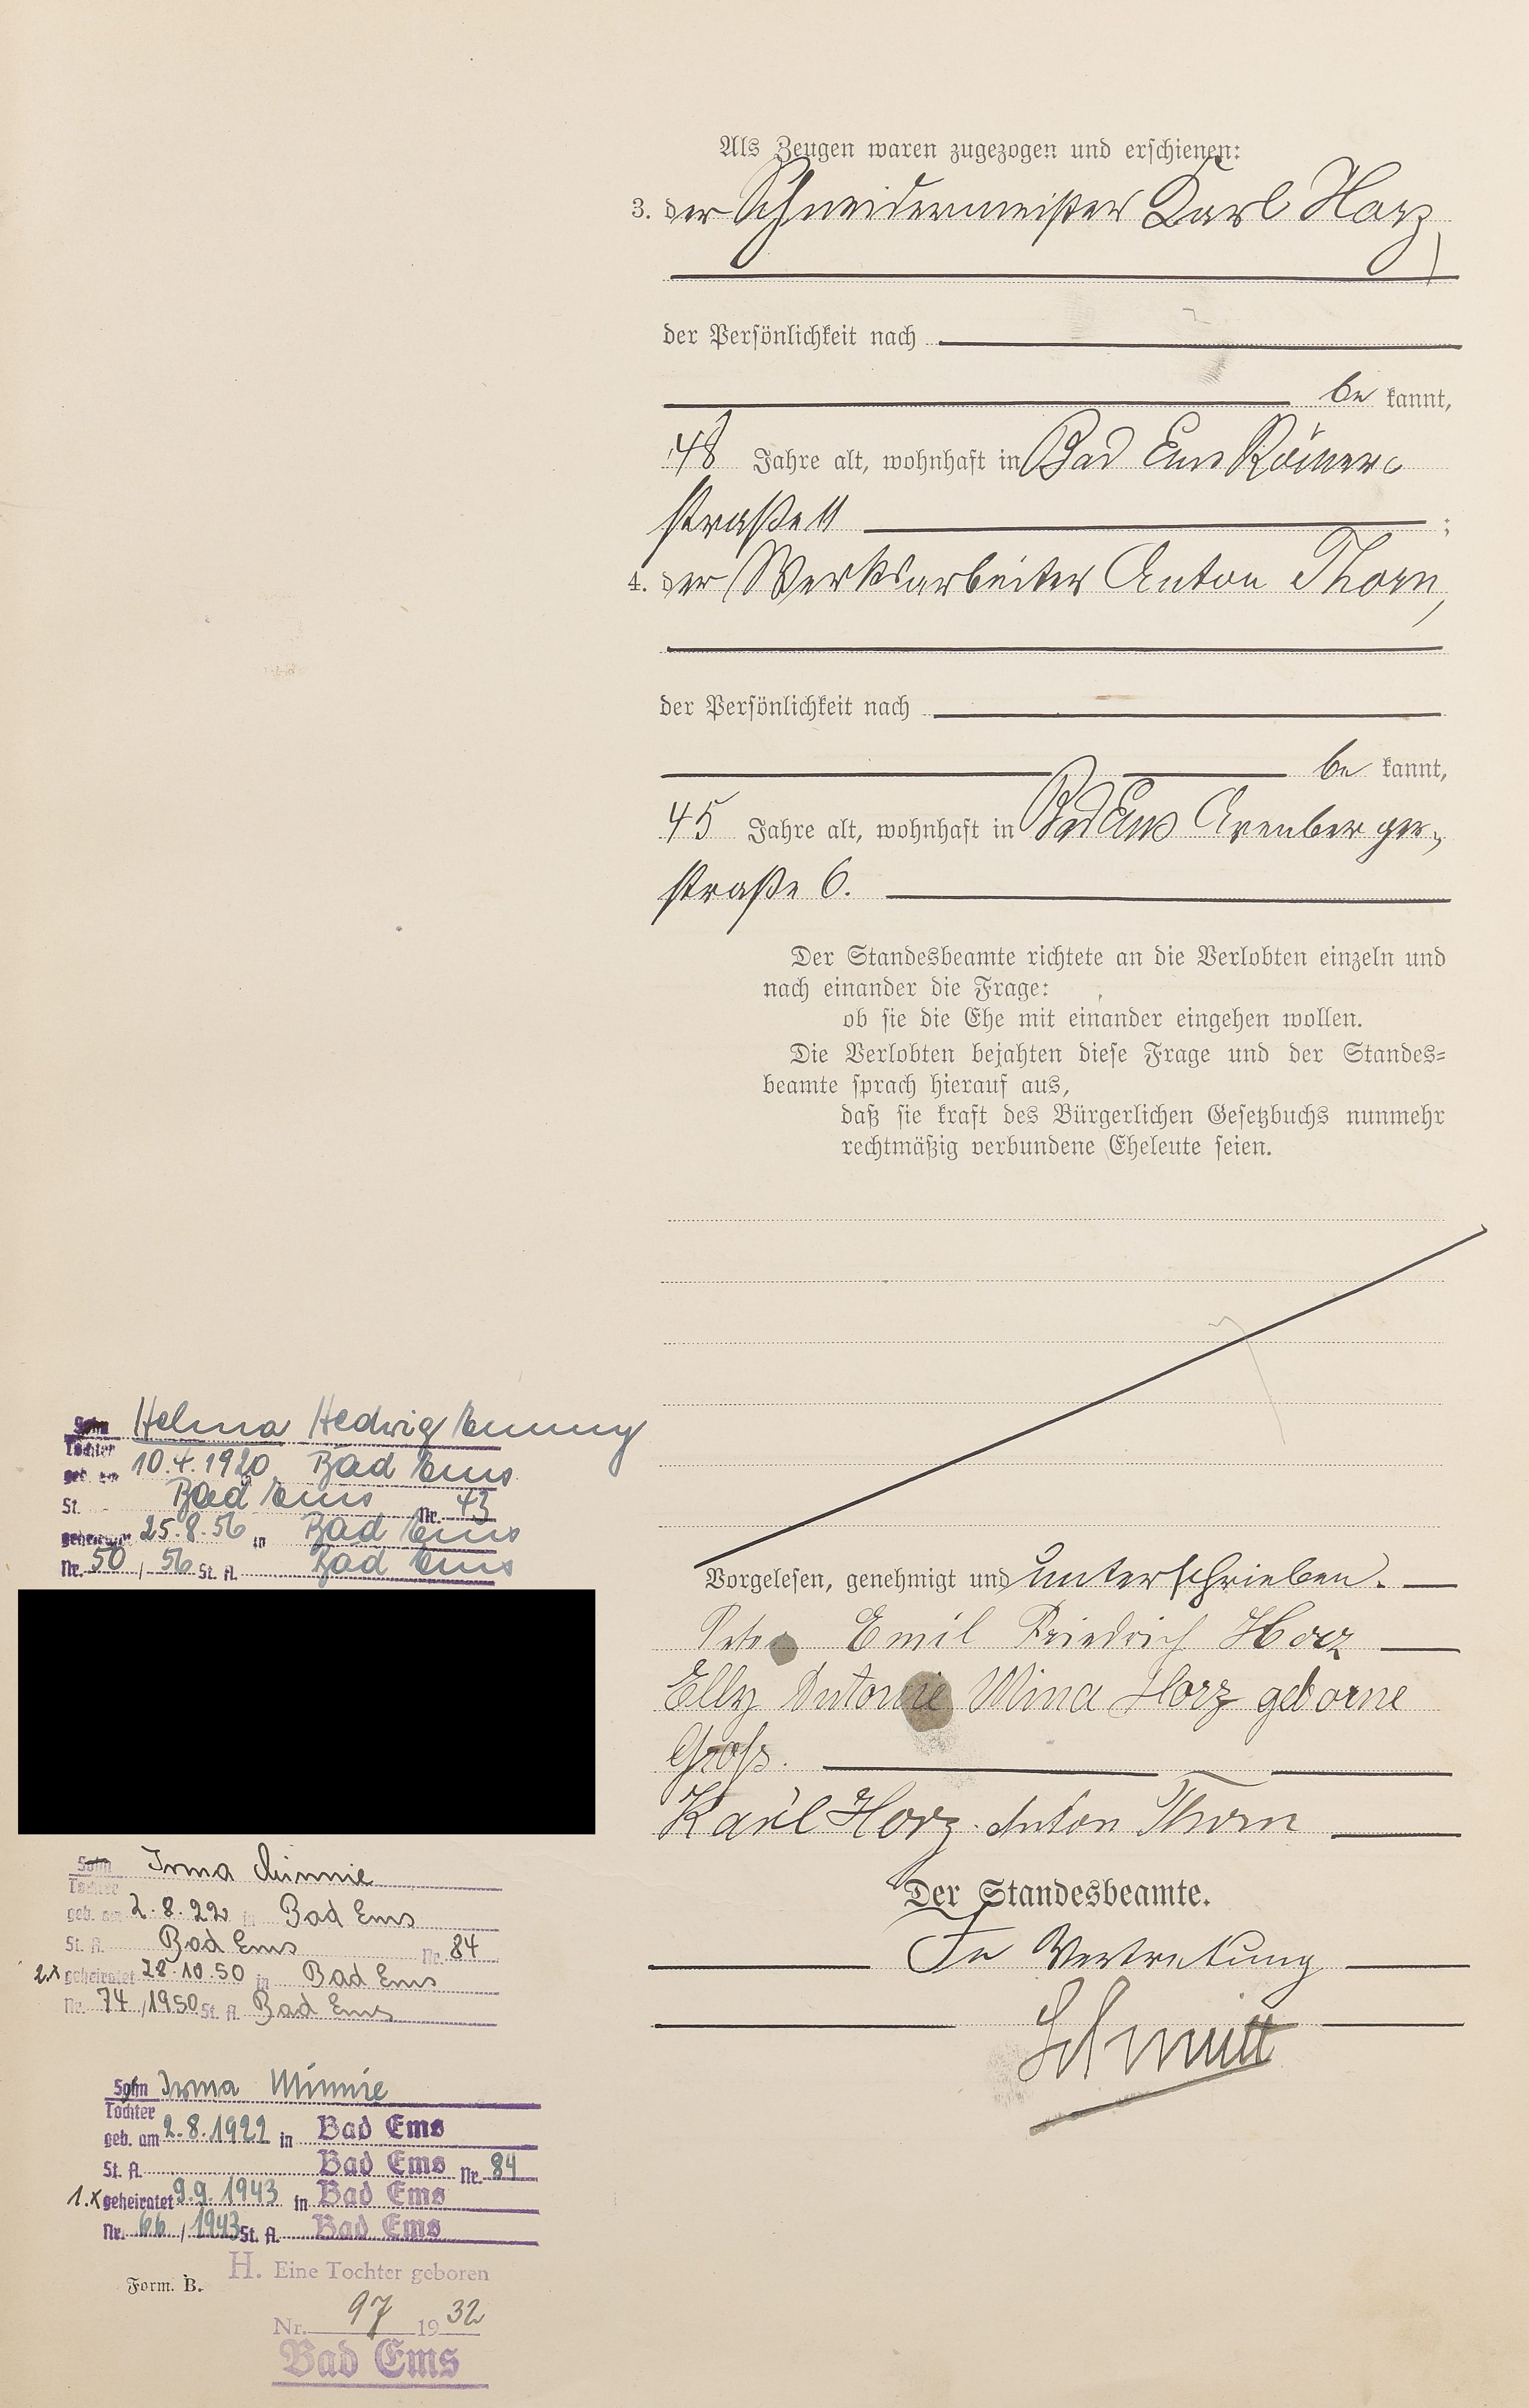 Als Zeugen waren zugezogen und erschienen:
3. der Schneidermeister Karl Horz,
der Persönlichkeit nach
be kannt,
48 Jahre alt, wohnhaft in Bad Ems Römer-
straße 11 ;
4. der Werksarbeiter Anton Thorn,
der Persönlichkeit nach
be kannt,
45 Jahre alt, wohnhaft in Bad Ems Arenberger-
straße 6.
Der Standesbeamte richtete an die Verlobten einzeln und
nach einander die Frage:
ob sie die Ehe mit einander eingehen wollen.
Die Verlobten bejahten diese Frage und der Standes-
beamte sprach hierauf aus,
daß sie kraft des Bürgerlichen Gesetzbuchs nunmehr
rechtmäßig verbundene Eheleute seien.
Vorgelesen, genehmigt und unterschrieben.
Peter Emil Friedrich Horz
Elly Antonie Mina Horz geborne
Groß.
Karl Horz. Anton Thorn
Der Standesbeamte.
In Vertretung
Schmitt
Sohn Helma Hedwig Emmy
Tochter
geb. am 10.4.1920 Bad Ems
St. Bad Ems Nr. 43
geheiratet 25.8.56 in Bad Ems
Nr. 50 / 56 St. A. Bad Ems
Sohn Irma Minnie
Tochter
geb. am 2.8.22 in Bad Ems
St. A. Bad Ems Nr. 84
2.x geheiratet 28.10.50 in Bad Ems
Nr. 74 / 1950 St. A. Bad Ems
Sohn Irma Minnie
Tochter
geb. am 2.8.1922 in Bad Ems
St. A. Bad Ems Nr. 84
1.x geheiratet 9.9.1943 in Bad Ems
Nr. 66 / 1943 St. A. Bad Ems
H. Eine Tochter geboren
Form. B.
Nr. 97 19 32
Bad Ems